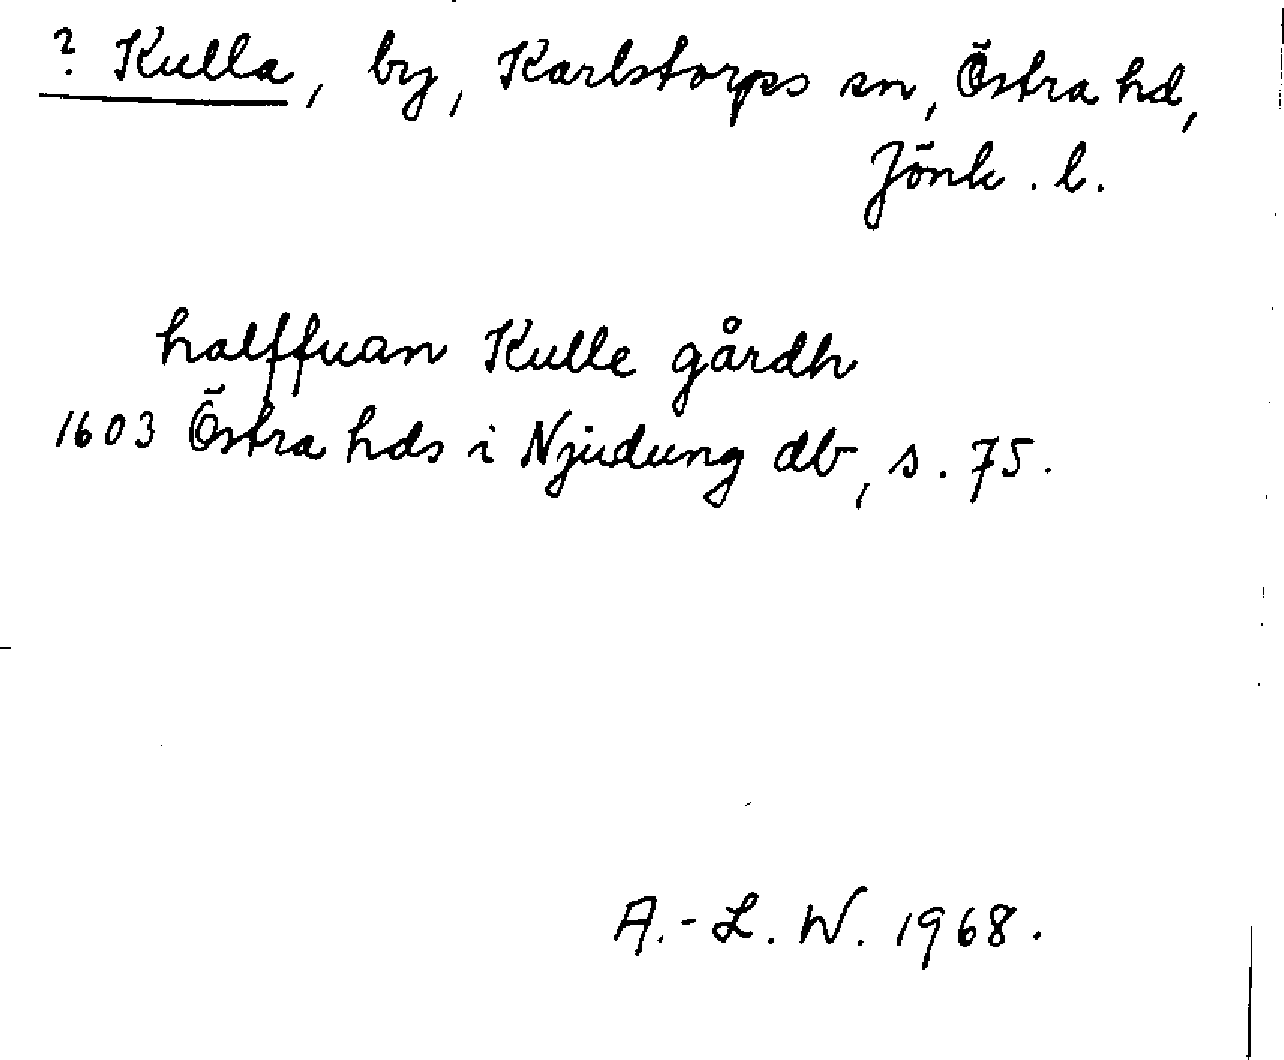 ? Kulla, by, Karlstorps sn, Östra hd,
Jönk. l.
halffuan Kulle gårdh
1603 Östra hds i Njudung db, s. 75.
A.-L. W. 1968.